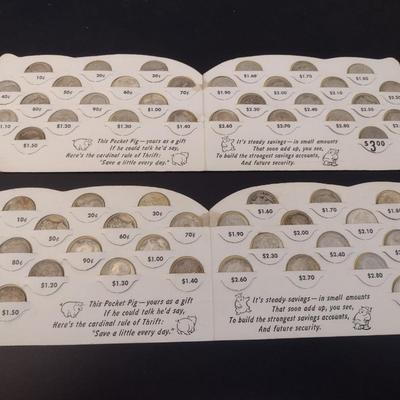 10¢ 20¢ 30¢
50¢ 60¢ 70¢
80¢ 90¢ $1.00
$1.20 $1.30 $1.40
$1.50
This Pocket Pig—yours as a gift
If he could talk he'd say,
Here's the cardinal rule of Thrift:
"Save a little every day."
$1.60 $1.70
$1.90 $2.00 $2.10
$2.30 $2.40 $2.50
$2.60 $2.70 $2.80
$3.00
It's steady savings—in small amounts
That soon add up, you see,
To build the strongest savings accounts,
And future security.
10¢ 20¢ 30¢
50¢ 60¢ 70¢
80¢ 90¢ $1.00
$1.20 $1.30 $1.40
$1.50
This Pocket Pig—yours as a gift
If he could talk he'd say,
Here's the cardinal rule of Thrift:
"Save a little every day."
$1.60 $1.70 $1.80
$1.90 $2.00 $2.10
$2.30 $2.40 $2.50
$2.60 $2.70 $2.80
It's steady savings—in small amounts
That soon add up, you see,
To build the strongest savings accounts,
And future security.